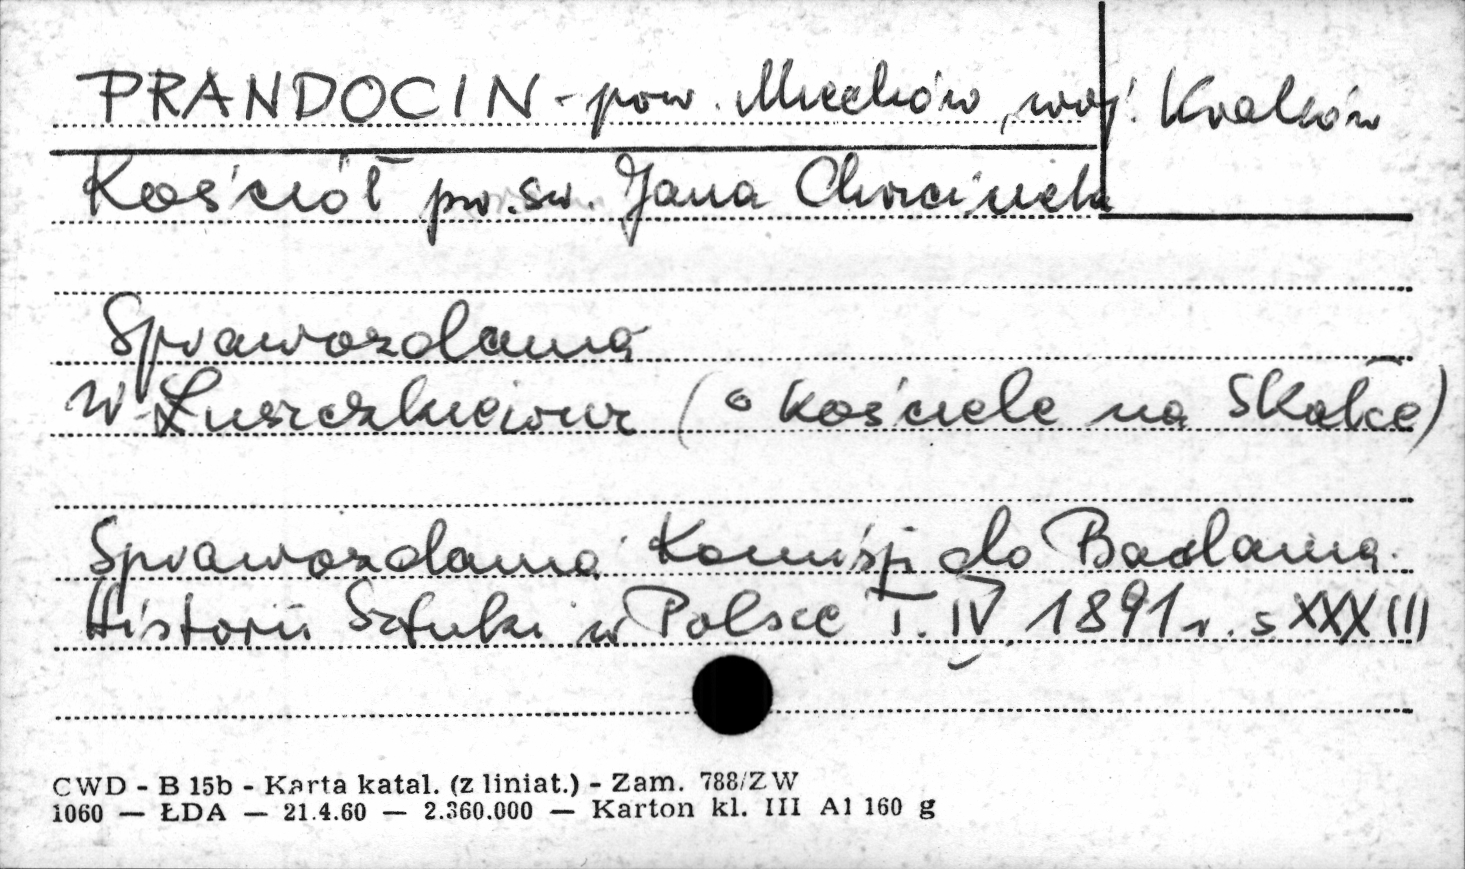 PRANDOCIN - pow. Miechów, woj. Kraków
Kościół pw. św. Jana Chrzciciela
Sprawozdania
W. Łuszczkiewicz (o kościele na Skałce)
Sprawozdania Komisji do Badania
Historii Sztuki w Polsce T. IV. 1891 r. s XXXIII
CWD - B 15b - Karta katal. (z liniat.) - Zam. 788/ZW
1060 — ŁDA — 21.4.60 — 2.360.000 — Karton kl. III A1 160 g